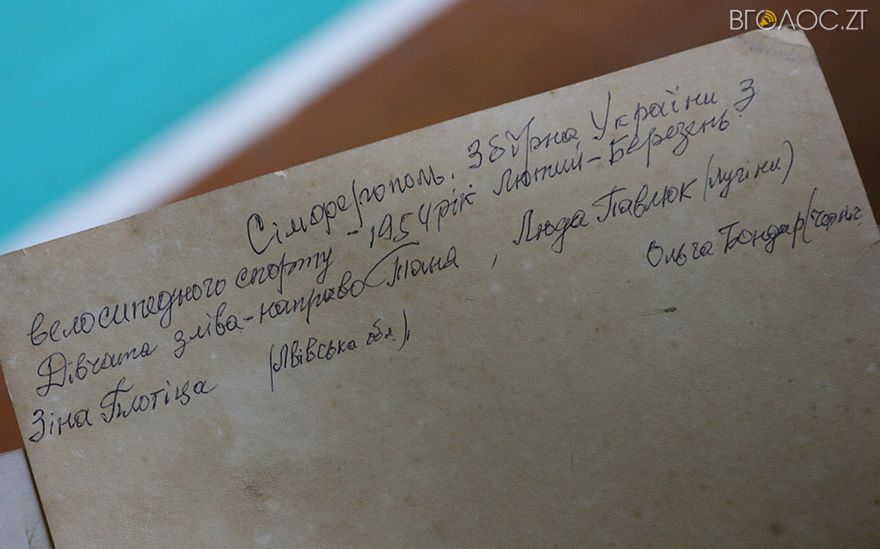 ВГОЛОС.ZT
Сімферополь. Збірна України з
велосипедного спорту - 1954 рік Лютий-Березень.
Дівчата зліва-направо Таня, Люда Павлюк (Лугіни)
Ольга Бондар (Черніг
Зіна Плотіца (Львівська обл),